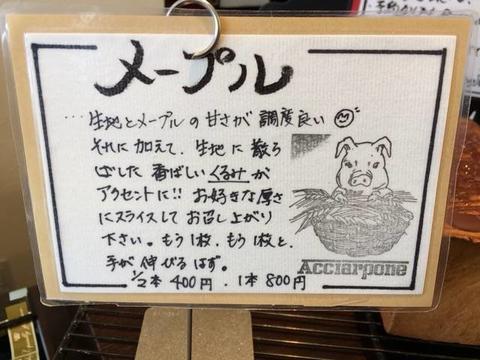 メープル
‥‥生地とメープルの甘さが調度良い
それに加えて、生地に散ら
ばした香ばしいくるみが
アクセントに!! お好きな厚さ
にスライスしてお召し上がり
下さい。もう1枚、もう1枚と、
手が伸びるはず。
1/2本 400円、1本 800円
Acciarpone